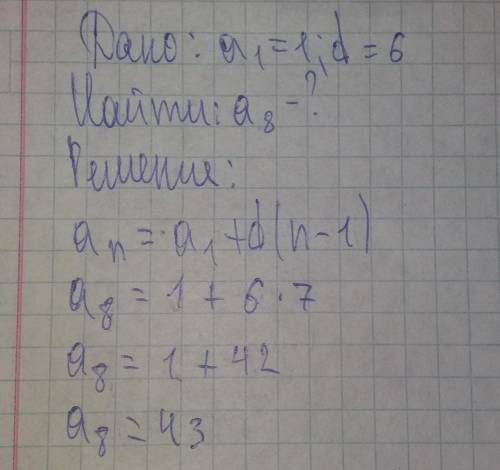 Дано: a₁ = 1; d = 6
Найти: a₈ - ?
Решение:
aₙ = a₁ + d(n-1)
a₈ = 1 + 6 · 7
a₈ = 1 + 42
a₈ = 43